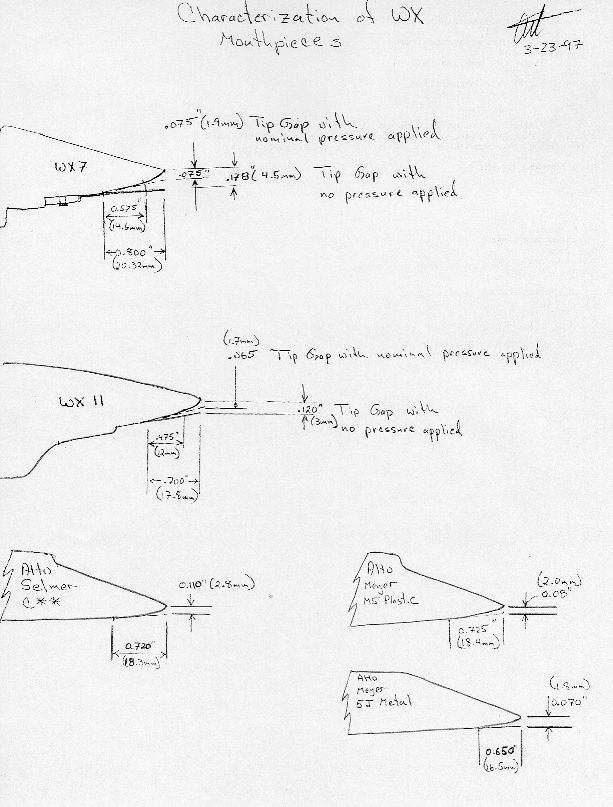 Characterization of WX
Mouthpieces
3-23-97
.075" (1.9mm) Tip Gap with
nominal pressure applied
WX7
.075"
.178" (4.5mm) Tip Gap with
no pressure applied
0.575"
(14.6mm)
0.800"
(20.32mm)
(1.7mm)
.065 Tip Gap with nominal pressure applied
WX 11
.120" Tip Gap with
(3mm) no pressure applied
.475"
(12mm)
.700"
(17.8mm)
Alto
Selmer
C**
0.110" (2.8mm)
0.720"
(18.3mm)
Alto
Meyer
M5 Plastic
(2.0mm)
0.08"
0.725"
(18.4mm)
Alto
Meyer
5J Metal
(1.8mm)
0.070"
0.650"
(16.5mm)